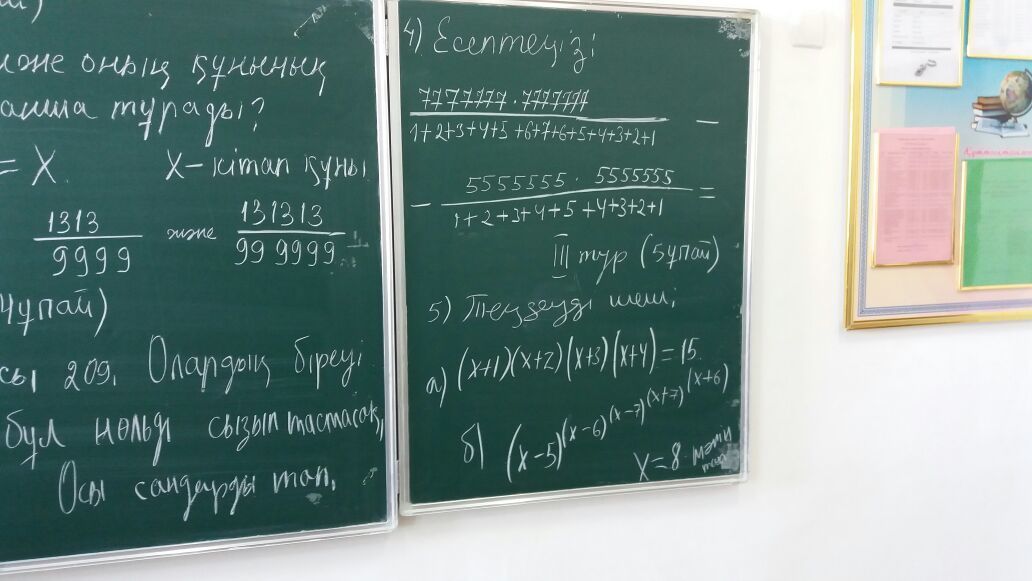 й)
және оның құнының
қанша тұрады?
= X. X – кітап құны
1313/9999 және 131313/999999
4ұпай)
сы 209. Олардың біреуі
бұл нөлді сызып тастасақ,
Осы сандарды тап.
4) Есептеңіз:
7777777 · 7777777
1+2+3+4+5+6+7+6+5+4+3+2+1 –
– 5555555 · 5555555
1+2+3+4+5+4+3+2+1 =
III тур (5ұпай)
5) Теңдеуді шеш:
а) (x+1)(x+2)(x+3)(x+4)=15.
б) (x–5)^(x–6)^(x–7)^(x+7)^(x+6)
X=8 мәтін